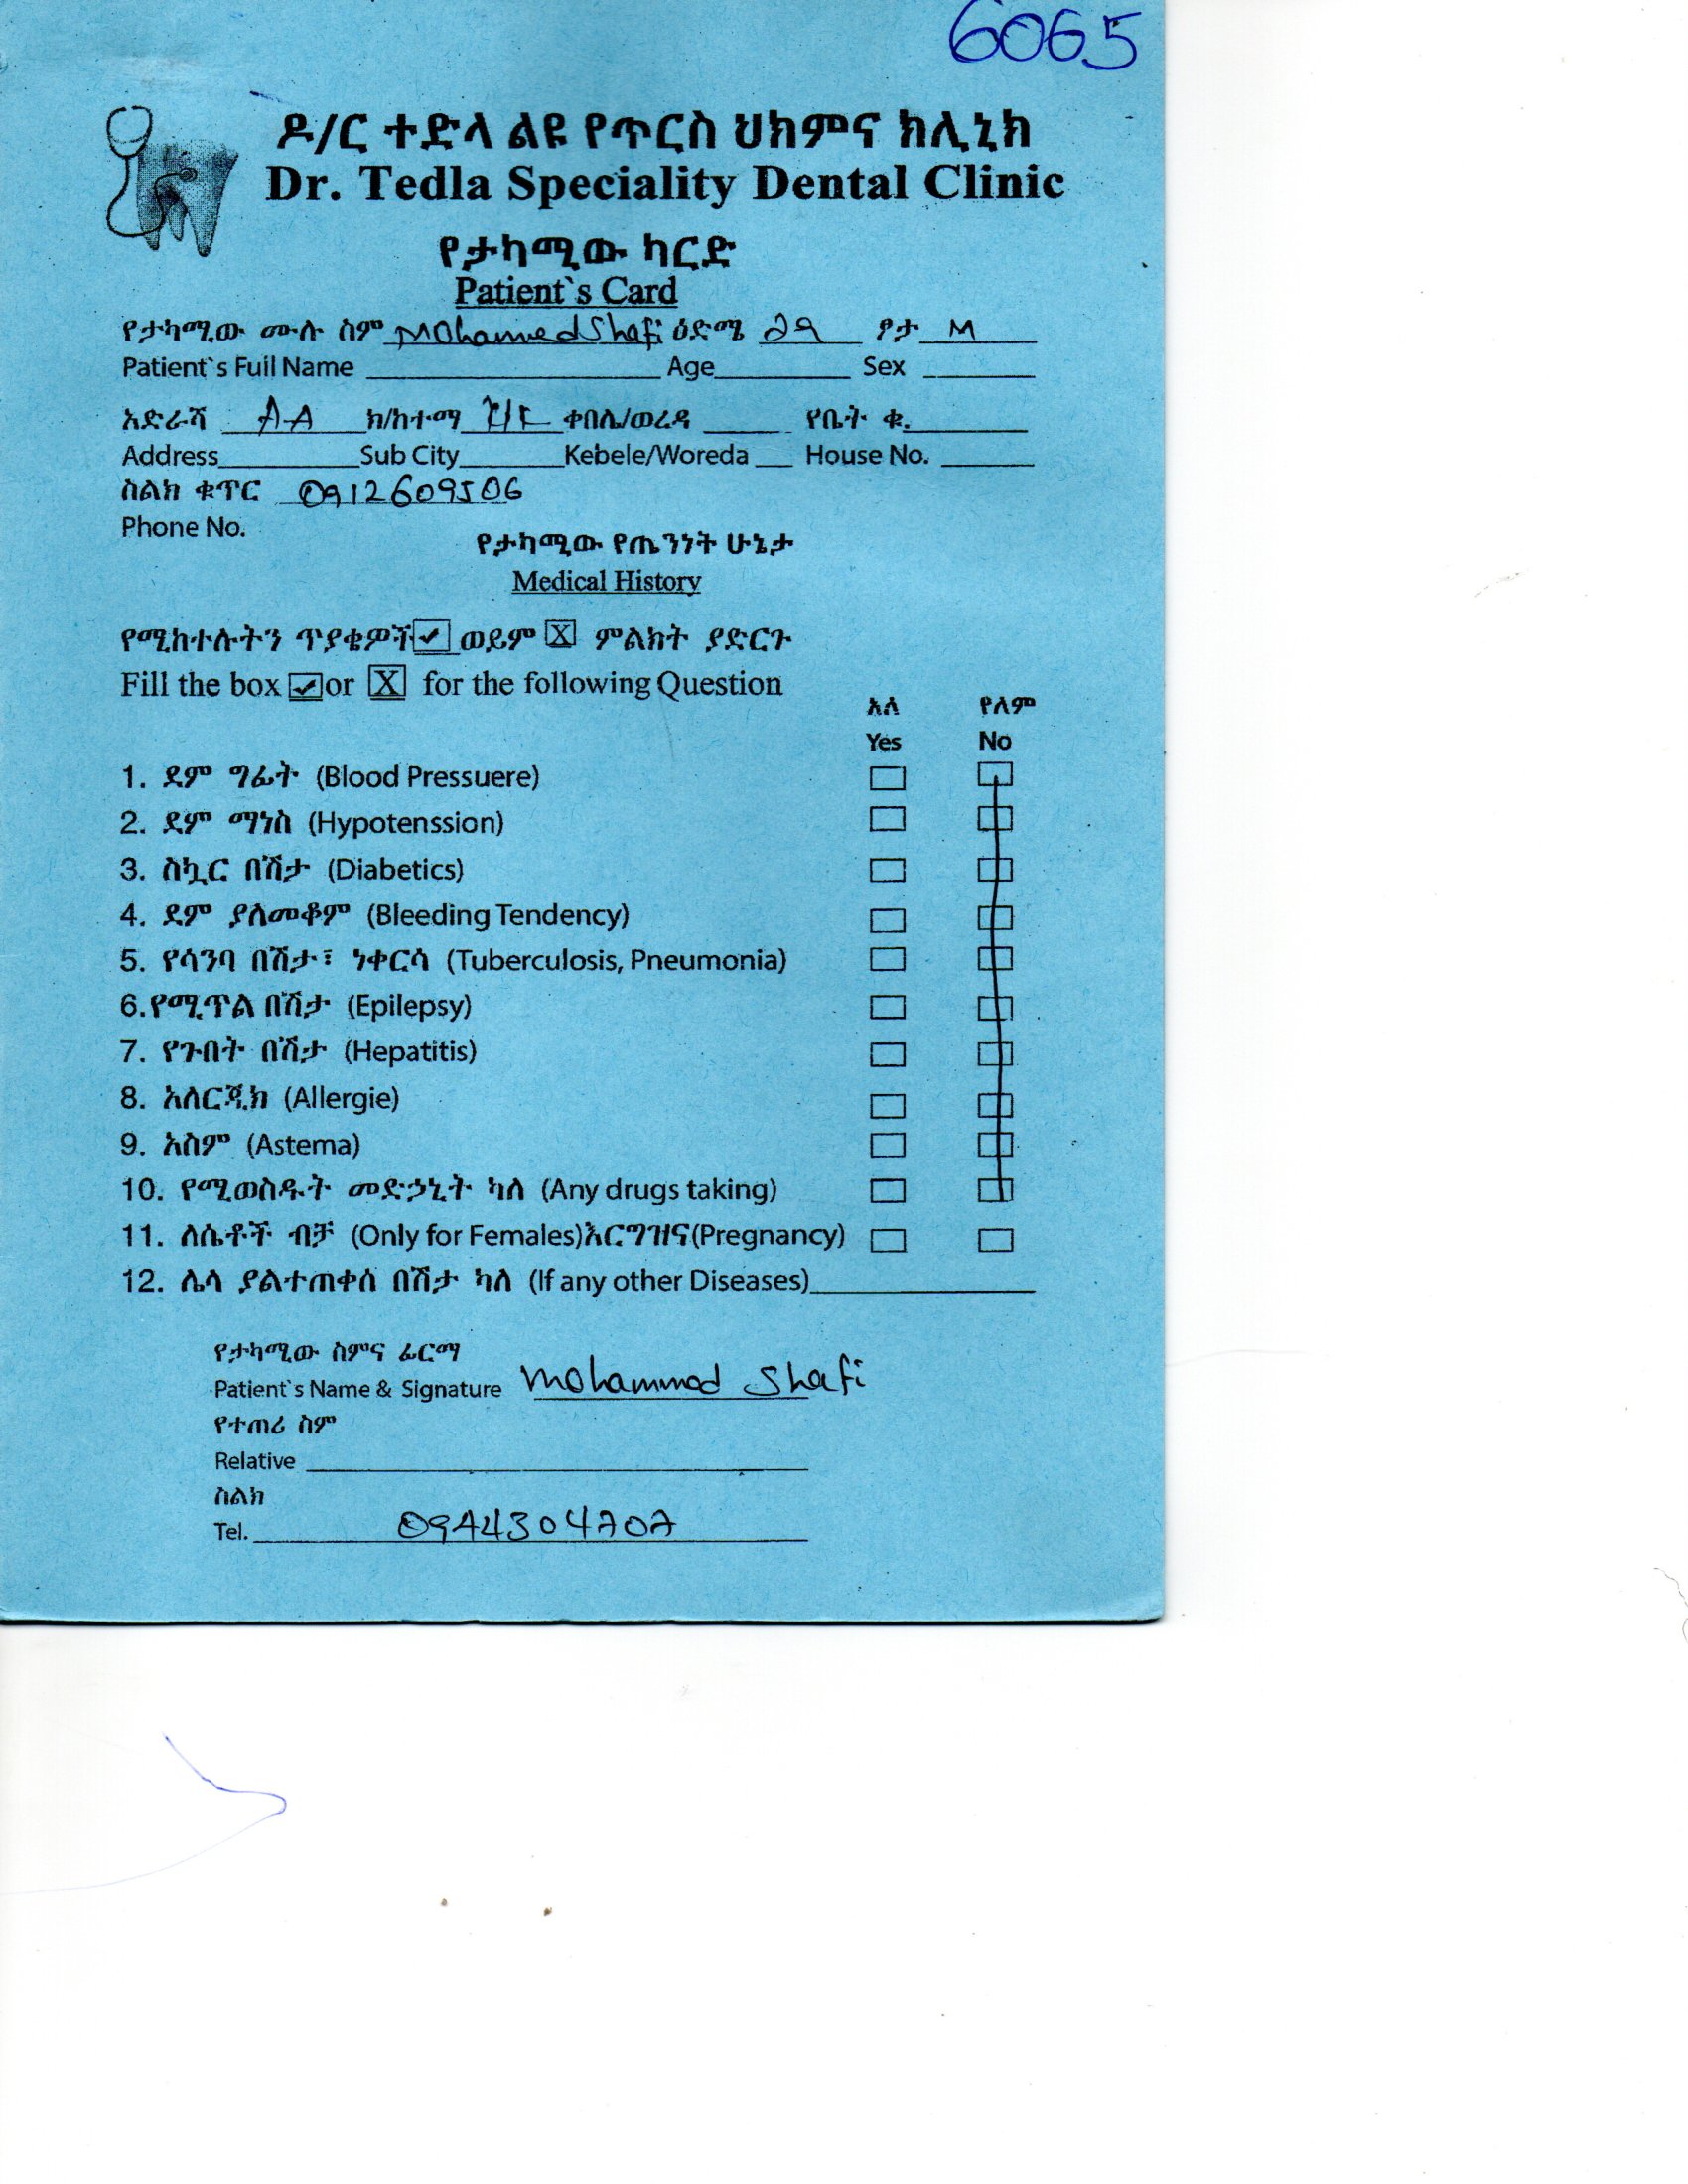 6065
ዶ/ር ተድላ ልዩ የጥርስ ህክምና ክሊኒክ
Dr. Tedla Speciality Dental Clinic
የታካሚው ካርድ
Patient`s Card
የታካሚው ሙሉ ስም Mohammed Shafi ዕድሜ 29 ፆታ M
Patient`s Full Name Age Sex
አድራሻ A-A ክ/ከተማ ቀበሌ/ወረዳ የቤት ቁ.
Address Sub City Kebele/Woreda House No.
ስልክ ቁጥር 0912609506
Phone No.
የታካሚው የጤንነት ሁኔታ
Medical History
የሚከተሉትን ጥያቄዎች ✓ ወይም X ምልክት ያድርጉ
Fill the box ✓ or X for the following Question
አለ የለም
Yes No
1. ደም ግፊት (Blood Pressuere)
2. ደም ማነስ (Hypotenssion)
3. ስኳር በሽታ (Diabetics)
4. ደም ያለመቆም (Bleeding Tendency)
5. የሳንባ በሽታ፣ ነቀርሳ (Tuberculosis, Pneumonia)
6.የሚጥል በሽታ (Epilepsy)
7. የጉበት በሽታ (Hepatitis)
8. አለርጂክ (Allergie)
9. አስም (Astema)
10. የሚወስዱት መድኃኒት ካለ (Any drugs taking)
11. ለሴቶች ብቻ (Only for Females)እርግዝና(Pregnancy)
12. ሌላ ያልተጠቀሰ በሽታ ካለ (If any other Diseases)
የታካሚው ስምና ፊርማ
Patient`s Name & Signature Mohammod Shafi
የተጠሪ ስም
Relative
ስልክ
Tel. 0944304707